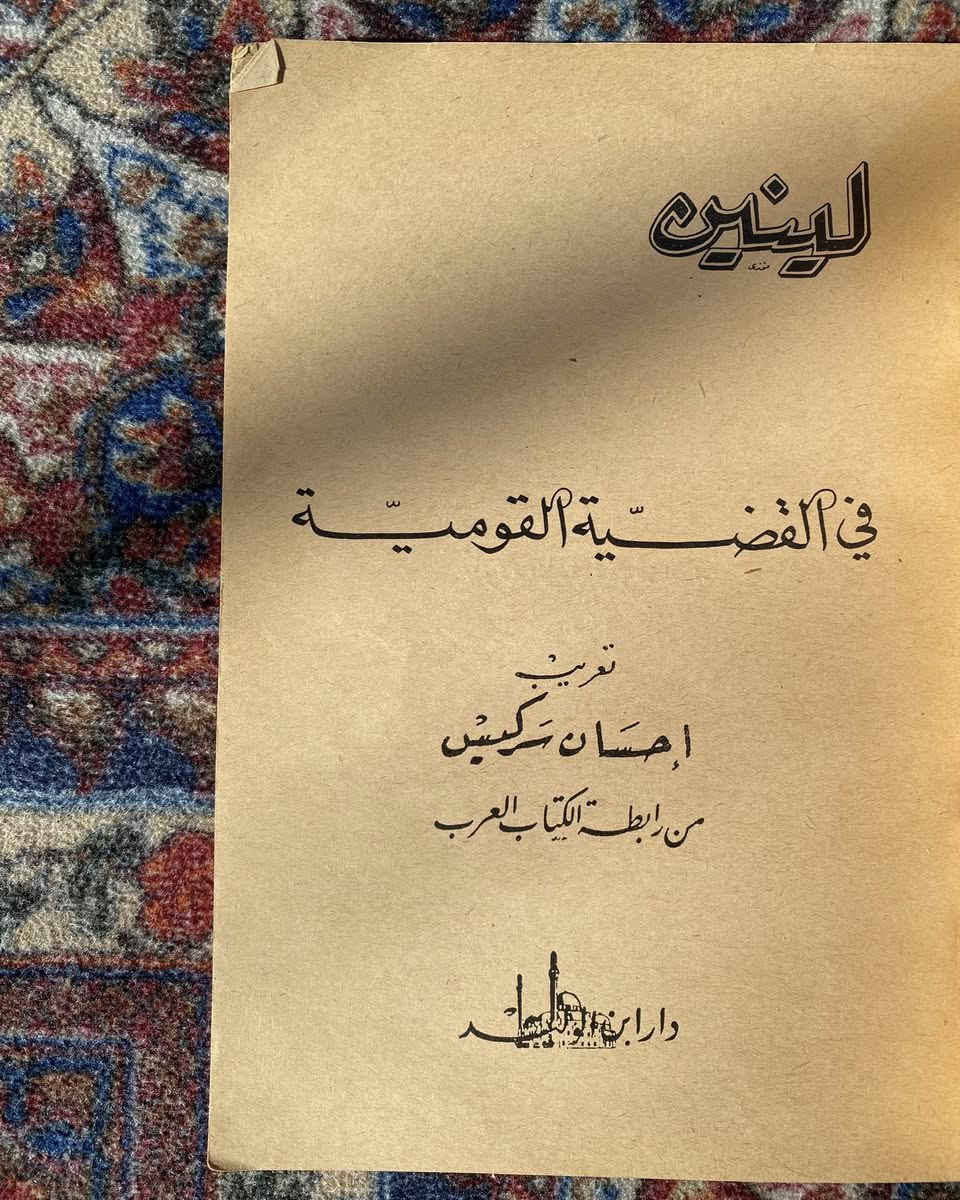 لينين
في القضيّة القوميّة
تعريب
إحسَان سَركيسْ
من رابطة الكتاب العرب
دار ابن الوليد